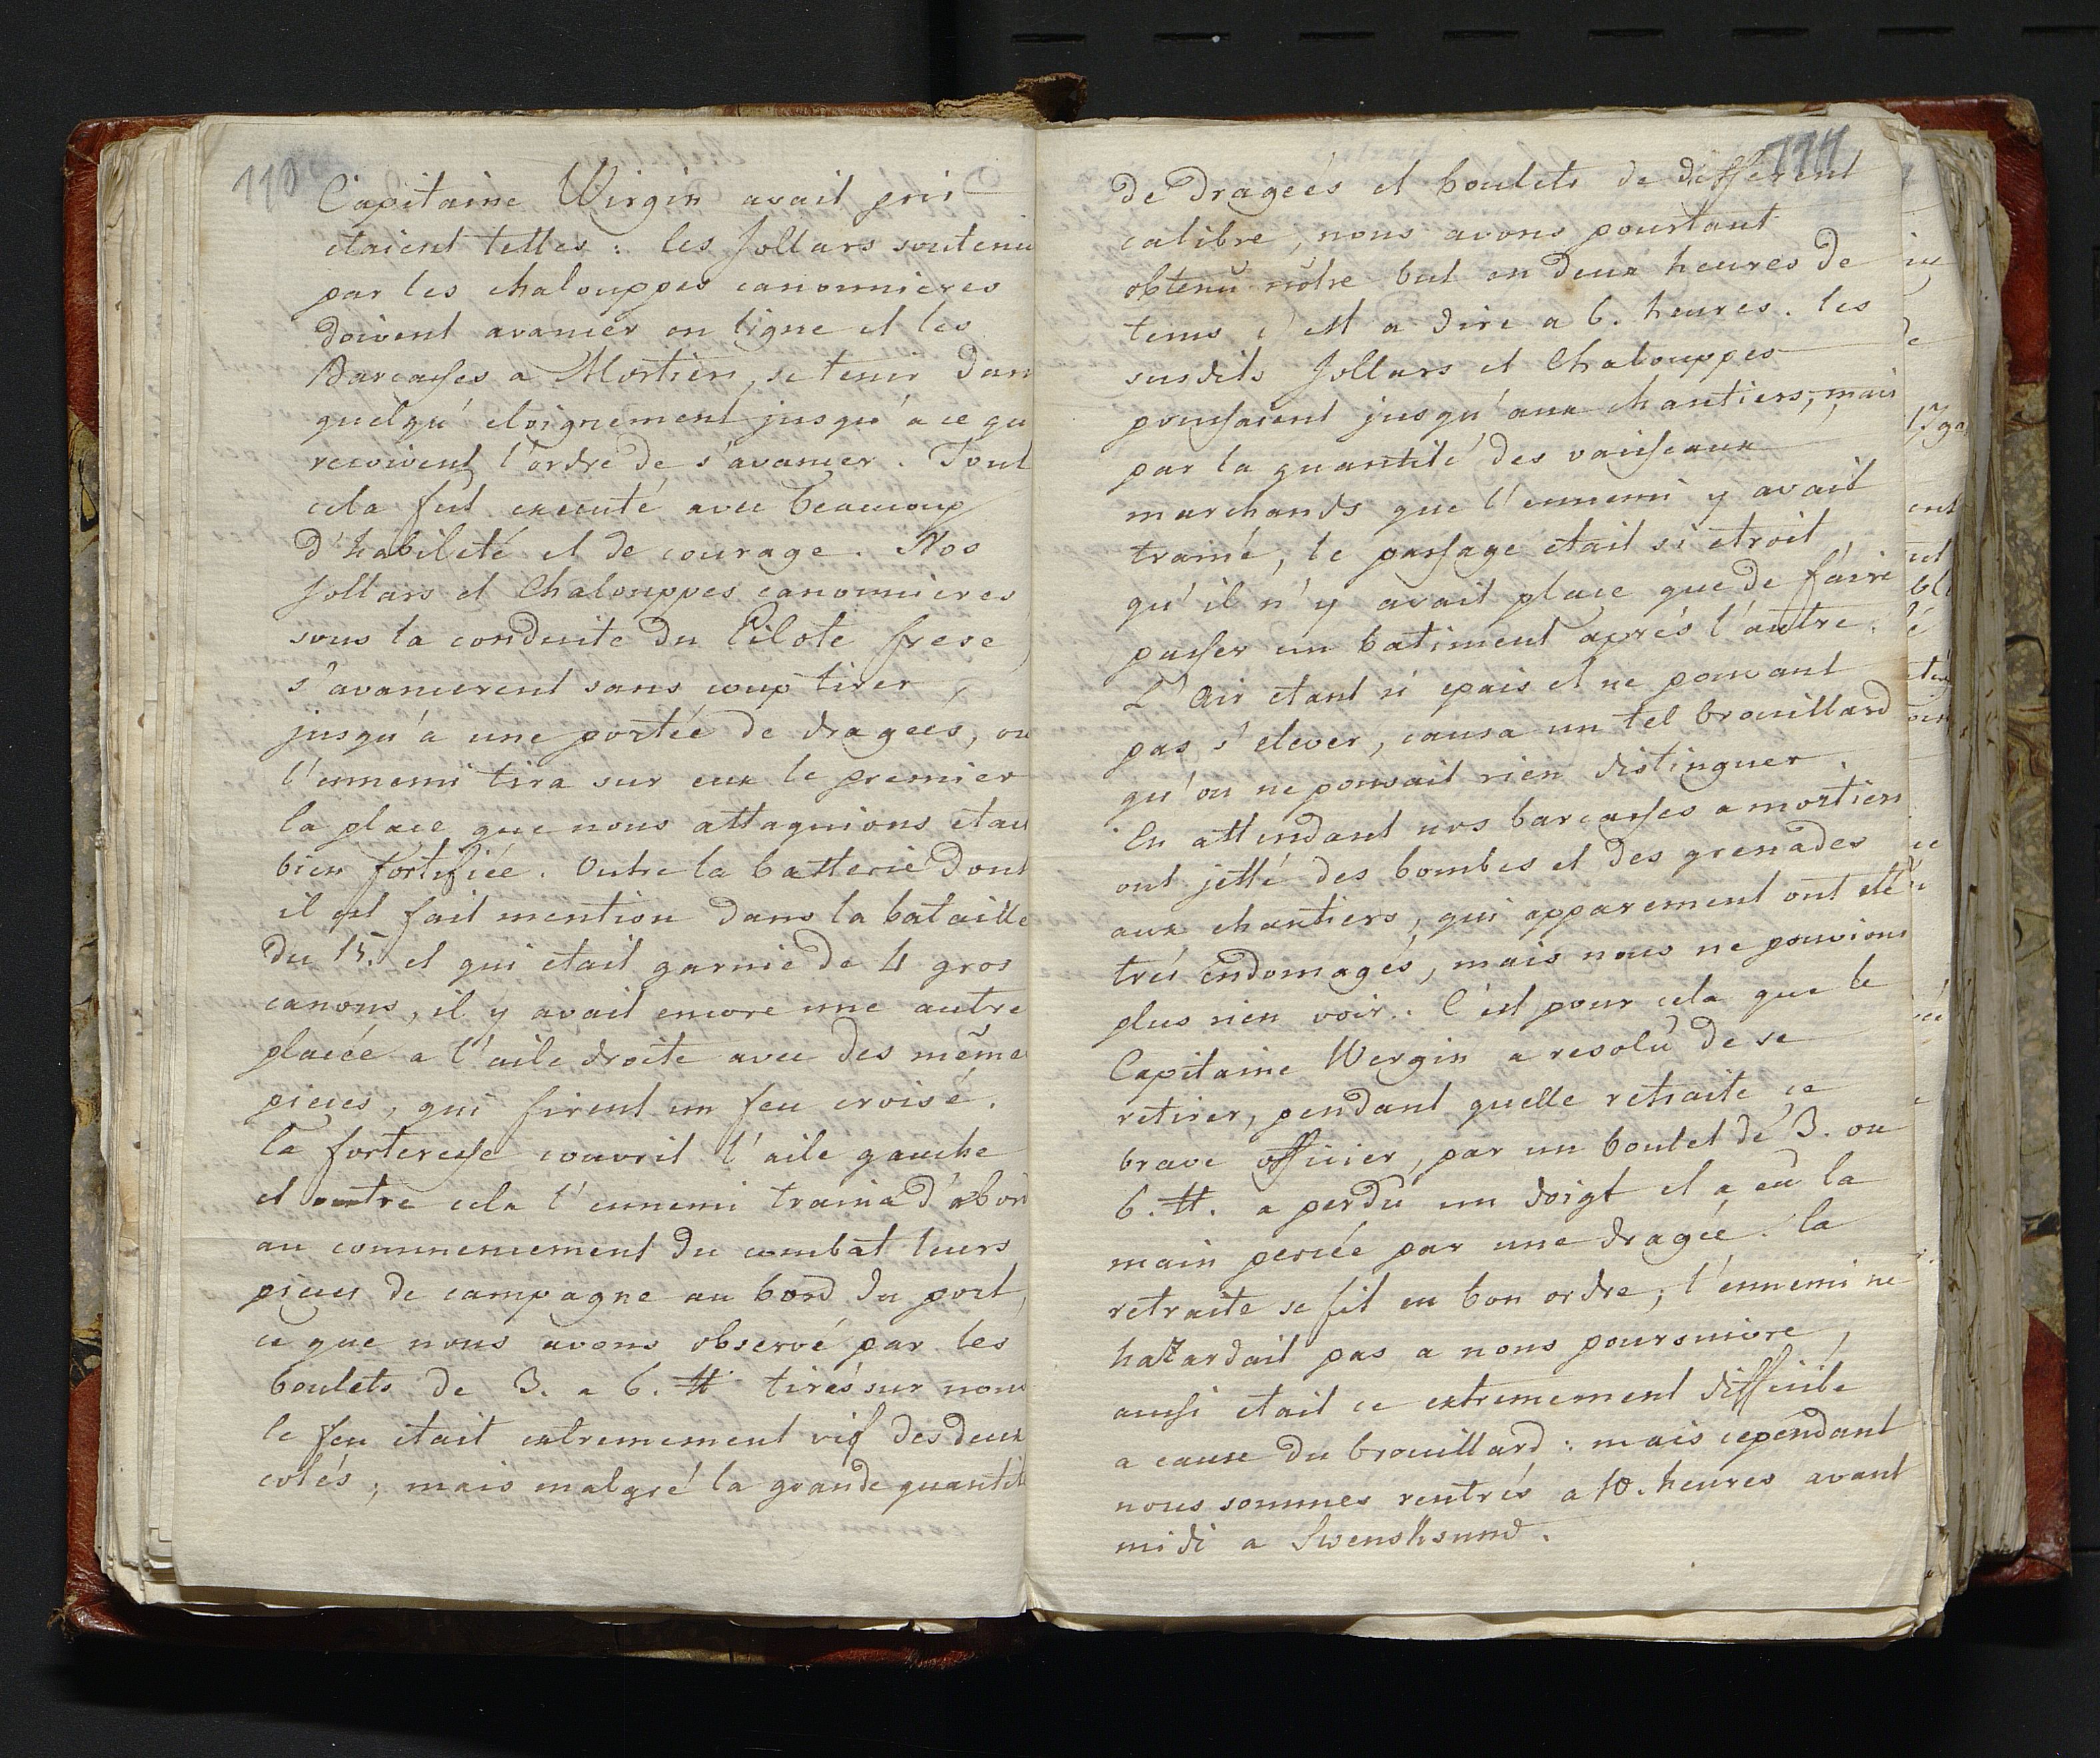 110
Capitaine Wirgin avait pris
etaient telles: les Jollars soutenu
par les chalouppes canonnieres
doivent avancer en ligne et les
Barcasses a Mortiers, se tenir dan
quelqu' eloignement jusqu'a ce qu
recoivent l'ordre de s'avancer. Tout
cela fut executé avec beaucoup
d'habileté et de courage. Nos
Jollars et Chalouppes canonnieres
sous la conduite du Pilote frese
s'avancerent sans coup tirer,
jusqu'a une portée de dragees, ou
l'ennemi tira sur eux le premier
la place que nous attaquions etait
bien fortifiée. Outre la batterie dont
il est fait mention dans la bataille
du 15. et qui etait garnie de 4 gros
canons, il y avait encore une autre
placée a l'aile droite avec des même
pieces, qui firent un feu croisé.
la forteresse couvrit l'aile gauche
et outre cela l'ennemi traina d'abord
au commencement du combat leurs
pieces de campagne au bord du port,
ce que nous avons observé par les
boulets de 3. a 6. ℔ tirés sur nous
le feu etait extremement vif des deux
cotés; mais malgré la grande quantité
111
de Dragées et boulets de different
calibre, nous avons pourtant
obtenŭ nôtre but en deux heures de
tems c'est a dire a 6. heures. les
susdits Jollars et Chalouppes
pousserent jusqu'aux chantiers, mais
par la quantité des vaisseaux
marchands que l'ennemi y avait
trainé, le passage etait si etroit,
qu'il n'y avait place que de faire
passer un batiment aprés l'autre.
L'Air etant si epais et ne pouvant
pas s'elever, causa un tel brouillard
qu'on ne pouvait rien distinguer.
En attendant nos barcasses a mortiers
ont jetté des bombes et des grenades
aux chantiers, qui apparement ont eté
trés endomagés, mais nous ne pouvions
plus rien voir. C'est pour cela que le
Capitaine Wergin a resolŭ de se
retirer, pendant quelle retraite ce
brave officier, par un boulet de 3. ou
6. ℔. a perdŭ un doigt et a eŭ la
main percée par une dragée. la
retraite se fit en bon ordre, l'ennemi ne
hazardait pas a nous poursuivre,
aussi etait ce extremement difficile
a cause du brouillard: mais cependant
nous sommes rentrés a 10. heures avant
midi a Swensksund.